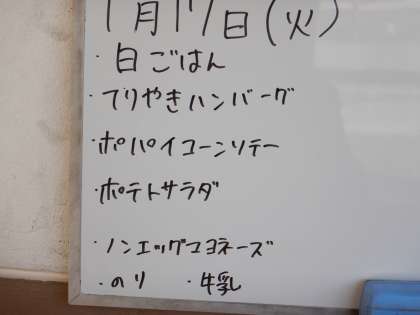 1月17日(火)
・白ごはん
・てりやきハンバーグ
・ポパイコーンソテー
・ポテトサラダ
・ノンエッグマヨネーズ
・のり ・牛乳